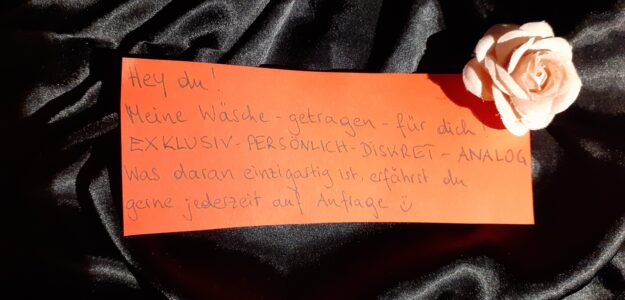 Hey du!
Meine Wäsche - getragen - für dich!
EXKLUSIV - PERSÖNLICH - DISKRET - ANALOG
Was daran einzigartig ist, erfährst du
gerne jederzeit auf Anfrage ☺